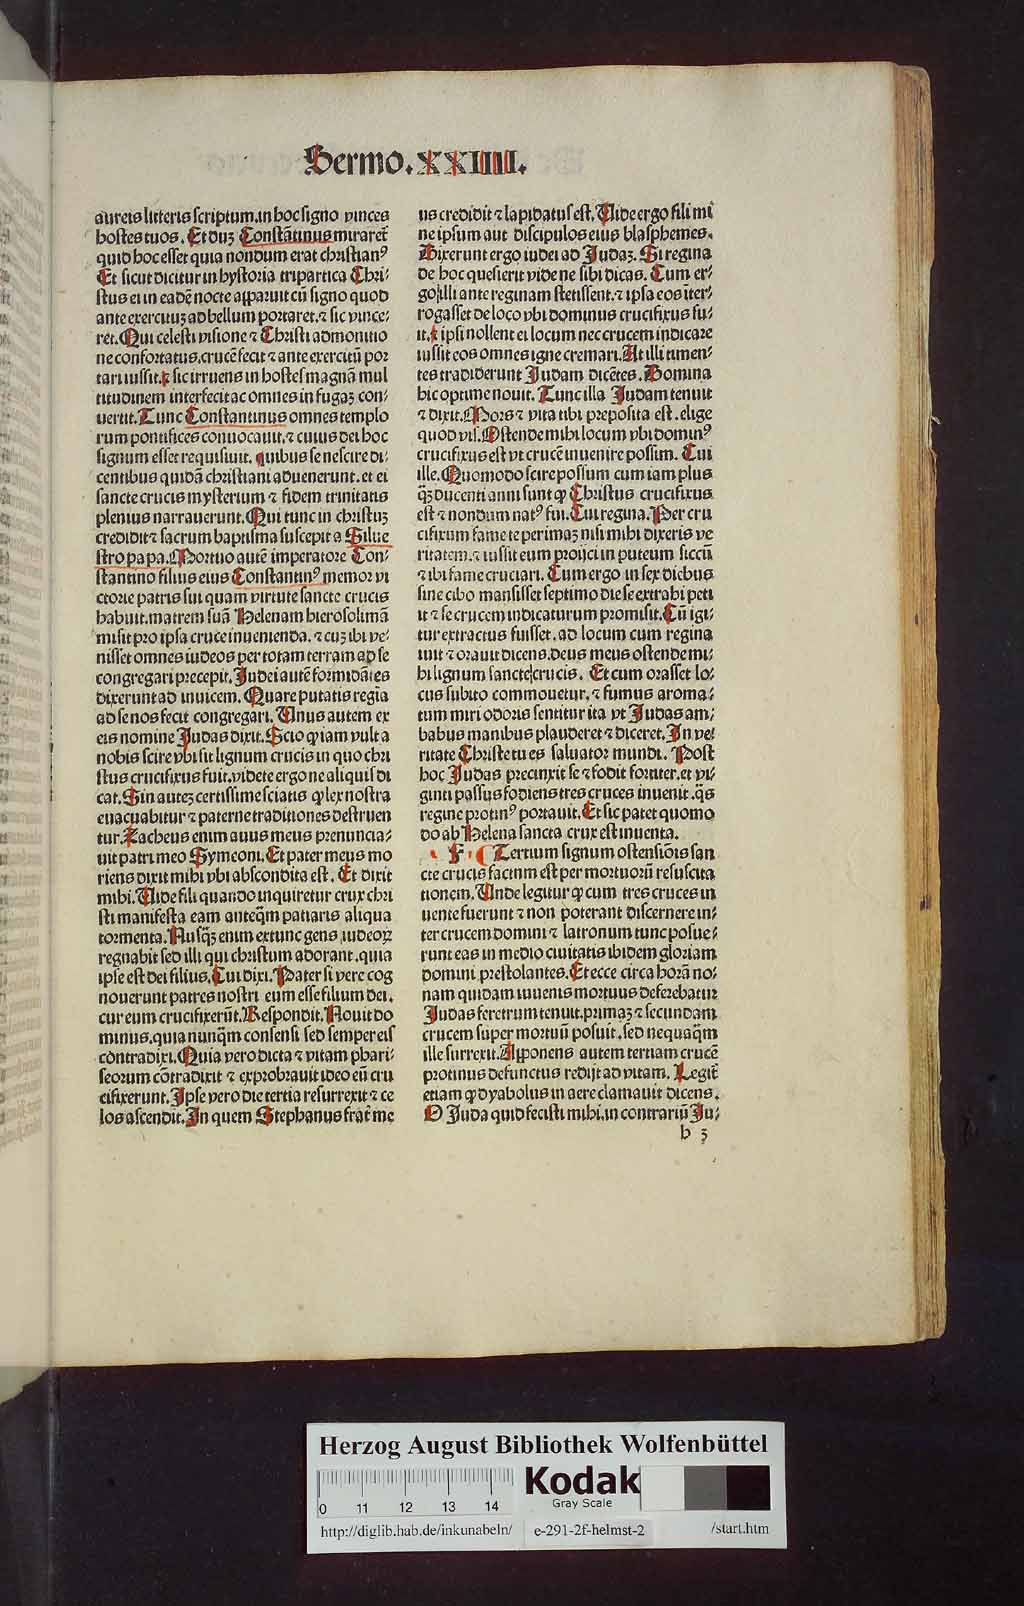 Sermo.XXIIII.
aureis litteris scriptum.in hoc signo vinces
hostes tuos. Et duȝ Constātinus miraret᷑
quid hoc esset quia nondum erat christianꝰ
Et sicut dicitur in hystoria tripartica Chri-
stus ei in eadē nocte apparuit cū signo quod
ante exercituȝ ad bellum portaret.⁊ sic vince-
ret. Qui celesti visione ⁊ Christi admonitio
ne confortatus.crucē fecit ⁊ ante exercitū por
tari iussit.⁊ sic irruens in hostes magnā mul
titudinem interfecit ac omnes in fugaȝ con-
uertit. Tunc Constantinus omnes templo
rum pontifices conuocauit.⁊ cuius dei hoc
signum esset requisiuit. quibus se nescire di-
centibus quidā christiani aduenerunt. et ei
sancte crucis mysterium ⁊ fidem trinitatis
plenius narrauerunt. Qui tunc in christuȝ
credidit ⁊ sacrum baptisma suscepit a Silue
stro papa. Mortuo autē imperatore Con-
stantino filius eius Constantinꝰ memor vi
ctorie patris sui quam virtute sancte crucis
habuit.matrem suā Helenam hierosolimā
misit pro ipsa cruce inuenienda.⁊ cuȝ ibi ve-
nisset omnes iudeos per totam terram ad se
congregari precepit. Judei autē formidātes
dixerunt ad inuicem. Quare putatis regīa
ad se nos fecit congregari. Unus autem ex
eis nomine Judas dixit. Scio qꝫiam vult a
nobis scire vbi sit lignum crucis in quo chri
stus crucifixus fuit.videte ergo ne aliquis di
cat. Sin auteȝ certissime sciatis ꝙ lex nostra
euacuabitur ⁊ paterne traditiones destruen
tur. Zacheus enim auus meus prenuncia-
uit patri meo Symeoni. Et pater meus mo
riens dixit mihi vbi abscondita est. Et dixit
mihi. Vide fili quando inquiretur crux chri
sti manifesta eam anteq̄m patiaris aliqua
tormenta. Nusq̄ȝ enim extunc gens iudeoꝝ
regnabit sed illi qui christum adorant.quia
ipse est dei filius. Cui dixi. Pater si vere cog
nouerunt patres nostri eum esse filium dei.
cur eum crucifixerūt. Respondit. Nouit do
minus.quia nunq̄m consensi sed semper eis
cōtradixi. Quia vero dicta ⁊ vitam phari-
seorum cōtradixit ⁊ exprobrauit ideo eū cru
cifixerunt. Ipse vero die tertia resurrexit ⁊ ce
los ascendit. In quem Stephanus frat᷑ me
us credidit ⁊ lapidatus est. Vide ergo fili mi
ne ipsum aut discipulos eius blasphemes.
Dixerunt ergo iudei ad Judaȝ. Si regina
de hoc quesierit vide ne sibi dicas. Cum er-
go illi ante reginam stetissent.⁊ ipsa eos īter-
rogasset de loco vbi dominus crucifixus fu-
it.⁊ ipsi nollent ei locum nec crucem indicare
iussit eos omnes igne cremari. At illi timen-
tes tradiderunt Judam dicētes. Domina
hic optime nouit. Tunc illa Judam tenuit
⁊ dixit. Mors ⁊ vita tibi preposita est. elige
quod vis. Ostende mihi locum vbi dominꝰ
crucifixus est vt crucē inuenire possim. Cui
ille. Quomodo scire possum cum iam plus
q̄ȝ ducenti anni sunt ꝙ Christus crucifixus
est ⁊ nondum natꝰ fui. Cui regina. Per cru
cifixum fame te perimaȝ nisi mihi dixeris ve
ritatem.⁊ iussit eum proijci in puteum siccū
⁊ ibi fame cruciari. Cum ergo in sex diebus
sine cibo mansisset septimo die se extrahi peti
it ⁊ se crucem indicaturum promisit. Cū igi-
tur extractus fuisset. ad locum cum regina
iuit ⁊ orauit dicens.deus meus ostende mi-
hi lignum sancte crucis. Et cum orasset lo-
cus subito commouetur.⁊ fumus aroma-
tum miri odoris sentitur ita vt Judas am-
babus manibus plauderet ⁊ diceret. In ve-
ritate Christe tu es saluator mundi. Post
hoc Judas precinxit se ⁊ fodit fortiter.et vi-
ginti passus fodiens tres cruces inuenit.q̄s
regine protinꝰ portauit. Et sic patet quomo
do ab Helena sancta crux est inuenta.
F Tertium signum ostensiōis san
cte crucis factum est per mortuorū resuscita
tionem. Unde legitur ꝙ cum tres cruces in
uente fuerunt ⁊ non poterant discernere in-
ter crucem domini ⁊ latronum tunc posue-
runt eas in medio ciuitatis ibidem gloriam
domini prestolantes. Et ecce circa horā no-
nam quidam iuuenis mortuus deferebatur
Judas feretrum tenuit.primaȝ ⁊ secundam
crucem super mortuū posuit.sed nequaq̄m
ille surrexit. Apponens autem tertiam crucē
protinus defunctus redijt ad vitam. Legit᷑
etiam ꝙ dyabolus in aere clamauit dicens.
O Juda quid fecisti mihi.in contrariū Ju-
b 3
Herzog August Bibliothek Wolfenbüttel
0 11 12 13 14
Kodak
Gray Scale
http://diglib.hab.de/inkunabeln/ e-291-2f-helmst-2 /start.htm